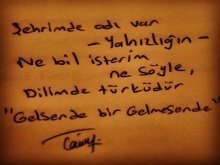 Şehrimde adı var
- Yalnızlığın -
Ne bil isterim
ne söyle,
Dilimde türküdür
"Gelsende bir Gelmesende"